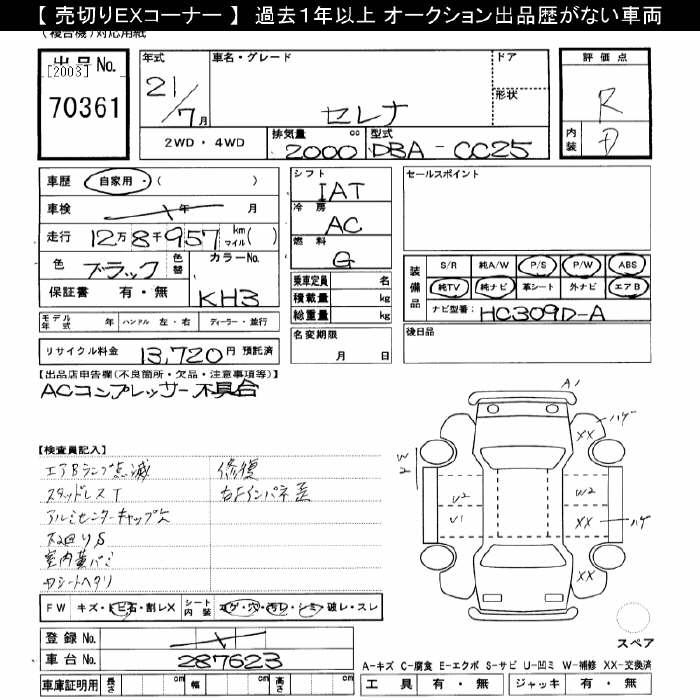 【 売切りEXコーナー 】 過去１年以上 オークション出品歴がない車両
(複合機)対応用紙
出品No.
[2003]
70361
年式
21/7月
車名・グレード
セレナ
ドア
形状
評価点
R
内装
D
2WD・4WD
排気量 cc
2000
型式
DBA-CC25
車歴 自家用・( )
車検 年 月
走行 12万8千957 km マイル( )
色 ブラック 色替
カラーNo.
KH3
保証書 有・無
モデル年式 年 ハンドル 左・右 ディーラー・並行
リサイクル料金 13,720円 預託済
シフト
IAT
冷房
AC
燃料
G
乗車定員 名
積載量 kg
総重量 kg
名変期限
月 日
セールスポイント
装備品
S/R 純A/W P/S P/W ABS
純TV 純ナビ 革シート 外ナビ エアB
ナビ型番: HC309D-A
後日品
【出品店申告欄(不良箇所・欠品・注意事項等)】
ACコンプレッサー不具合
【検査員記入】
エアBランプ点滅
スタッドレスT
アルミセンターキャップ欠
下廻りS
室内黄バミ
Dシートヘタリ
修復
右Fインパネ歪
A1
ハゲ
XX
W
U2
U1
W2
XX
ハゲ
XX
スペア
FW キズ・トビ石・割レX シート内装 コゲ・穴・汚レ・シミ・破レ・スレ
登録No.
車台No. 287623
車庫証明用 長さ cm 幅 cm 高さ cm
A-キズ C-腐食 E-エクボ S-サビ U-凹ミ W-補修 XX-交換済
工具 有・無 ジャッキ 有・無